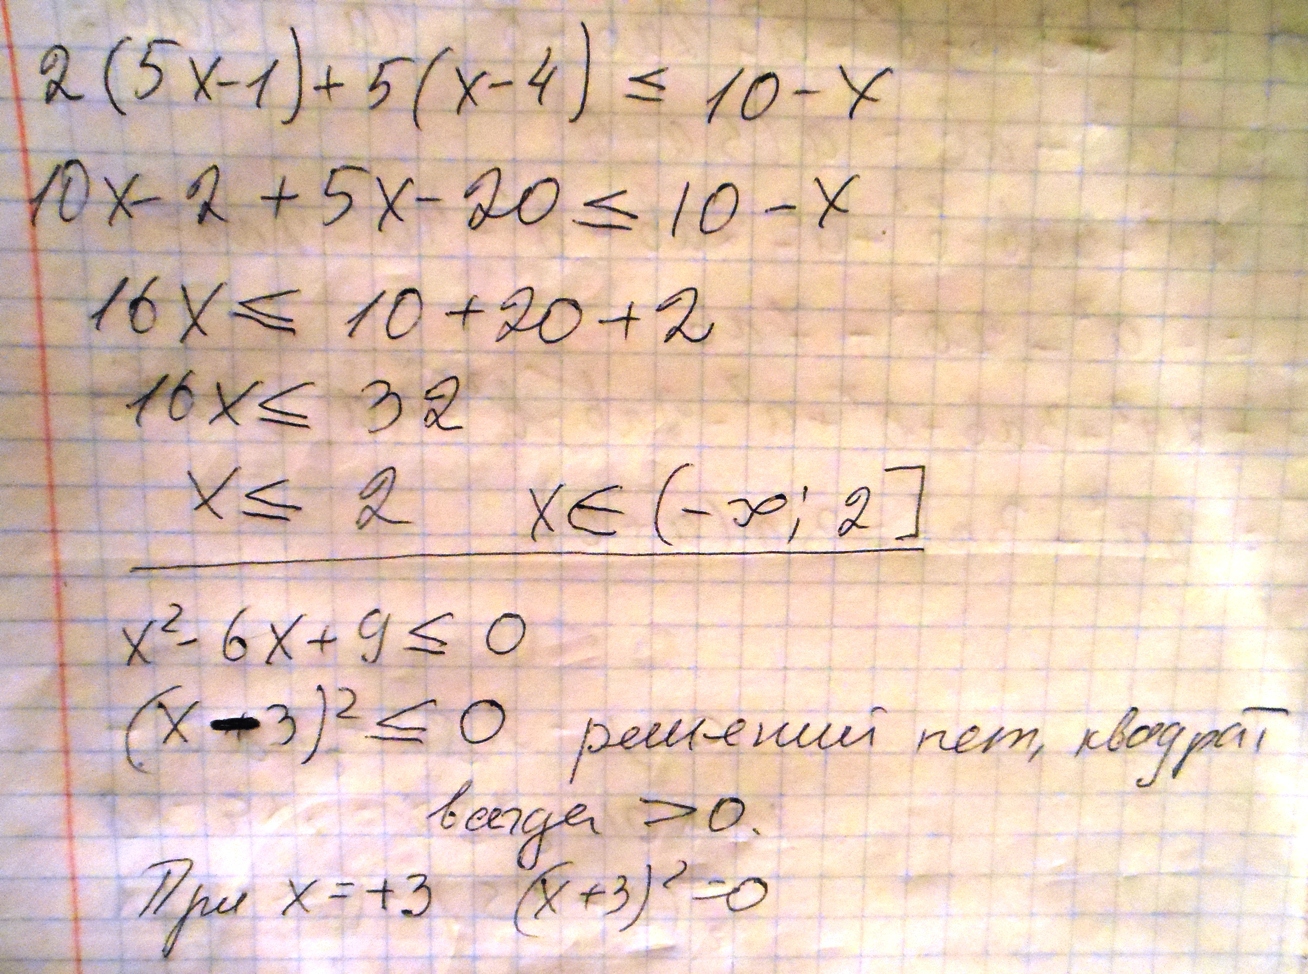 2(5x-1)+5(x-4) ≤ 10-x
10x-2+5x-20 ≤ 10-x
16x ≤ 10+20+2
16x ≤ 32
x ≤ 2 x∈(-∞; 2]
x²-6x+9 ≤ 0
(x-3)² ≤ 0 решений нет, квадрат
всегда >0.
При x=+3 (x+3)²=0